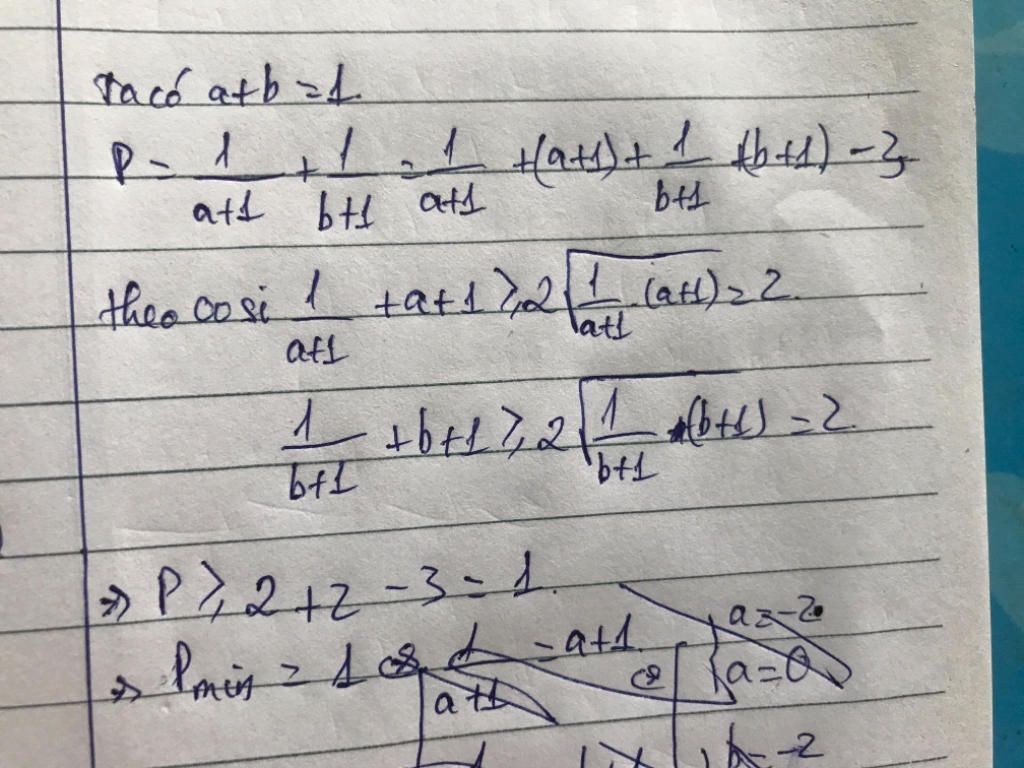 Ta có a+b=1.
P = 1/(a+1) + 1/(b+1) = 1/(a+1) + (a+1) + 1/(b+1) + (b+1) - 3
theo cosi 1/(a+1) + a+1 ≥ 2√(1/(a+1) . (a+1)) = 2.
1/(b+1) + b+1 ≥ 2√(1/(b+1) . (b+1)) = 2.
=> P ≥ 2+2-3 = 1.
=> Pmin = 1 <=> 1/(a+1) = a+1 <=> a=-2 a=0
b=-2